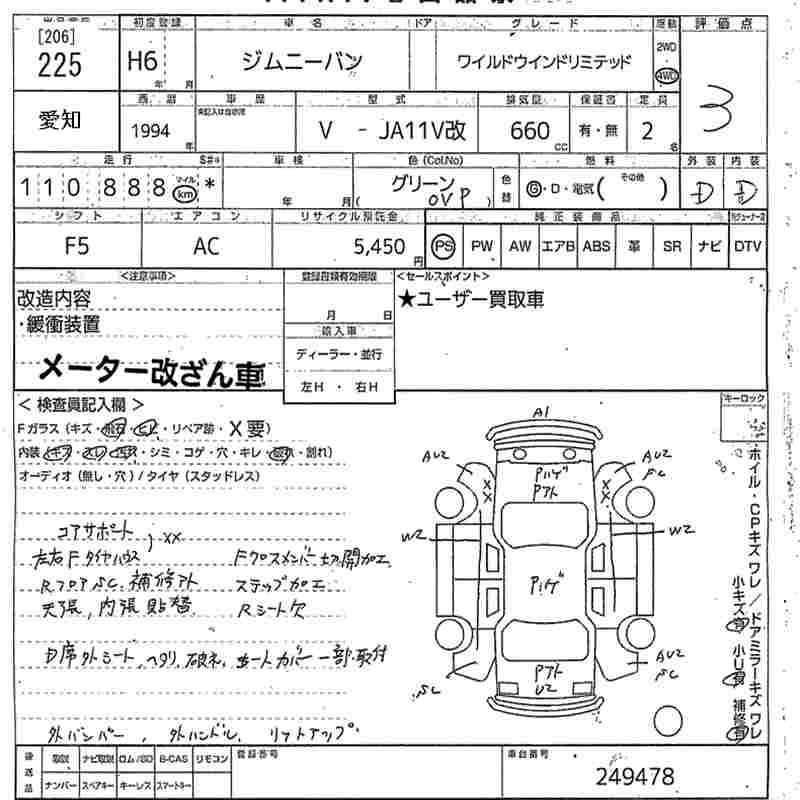 [206]
225
初度登録
H6
年 月
車名
ジムニーバン
ドア
グレード
ワイルドウインドリミテッド
2WD
4WD
評価点
3
愛知
西暦
1994
年
車歴
型式
V - JA11V改
排気量
660
CC
保証書
有・無
定員
2
名
走行
110888
マイル
km
*
車検
年 月
色(Col.No)
グリーン
OVP
色替
燃料
G・D・電気( その他 )
外装
D
内装
D
シフト
F5
エアコン
AC
リサイクル預託金
5,450
円
純正装備品
PS PW AW エアB ABS 革 SR ナビ DTV
<注意事項>
改造内容
・緩衝装置
メーター改ざん車
登録書類有効期限
月 日
輸入車
ディーラー・並行
左H ・ 右H
<セールスポイント>
★ユーザー買取車
<検査員記入欄>
キーロック
Fガラス(キズ・飛石・ヒビ・リペア跡・X要)
オーディオ(無し・穴)/タイヤ(スタッドレス)
コアサポート
, XX
左右Fタイヤハウス
RフロアSC、補修アト
天張,内張貼替
Fクロスメンバー切開加工
ステップ加工
Rシート欠
外バンパー, 外ハンドル, リフトアップ
A1
AU2
AU2
SC
Pハゲ
Pアト
X
X
X
X
W2
W2
Pハゲ
SC
Pアト
U2
AU2
SC
ホイル・CPキズワレ/ドアミラーキズワレ
小キズ有 小U有 補修有
後送品
取説 ナビ取説 ロム/SD B-CAS リモコン
ナンバー スペアキー キーレス スマートキー
登録番号
車台番号
249478